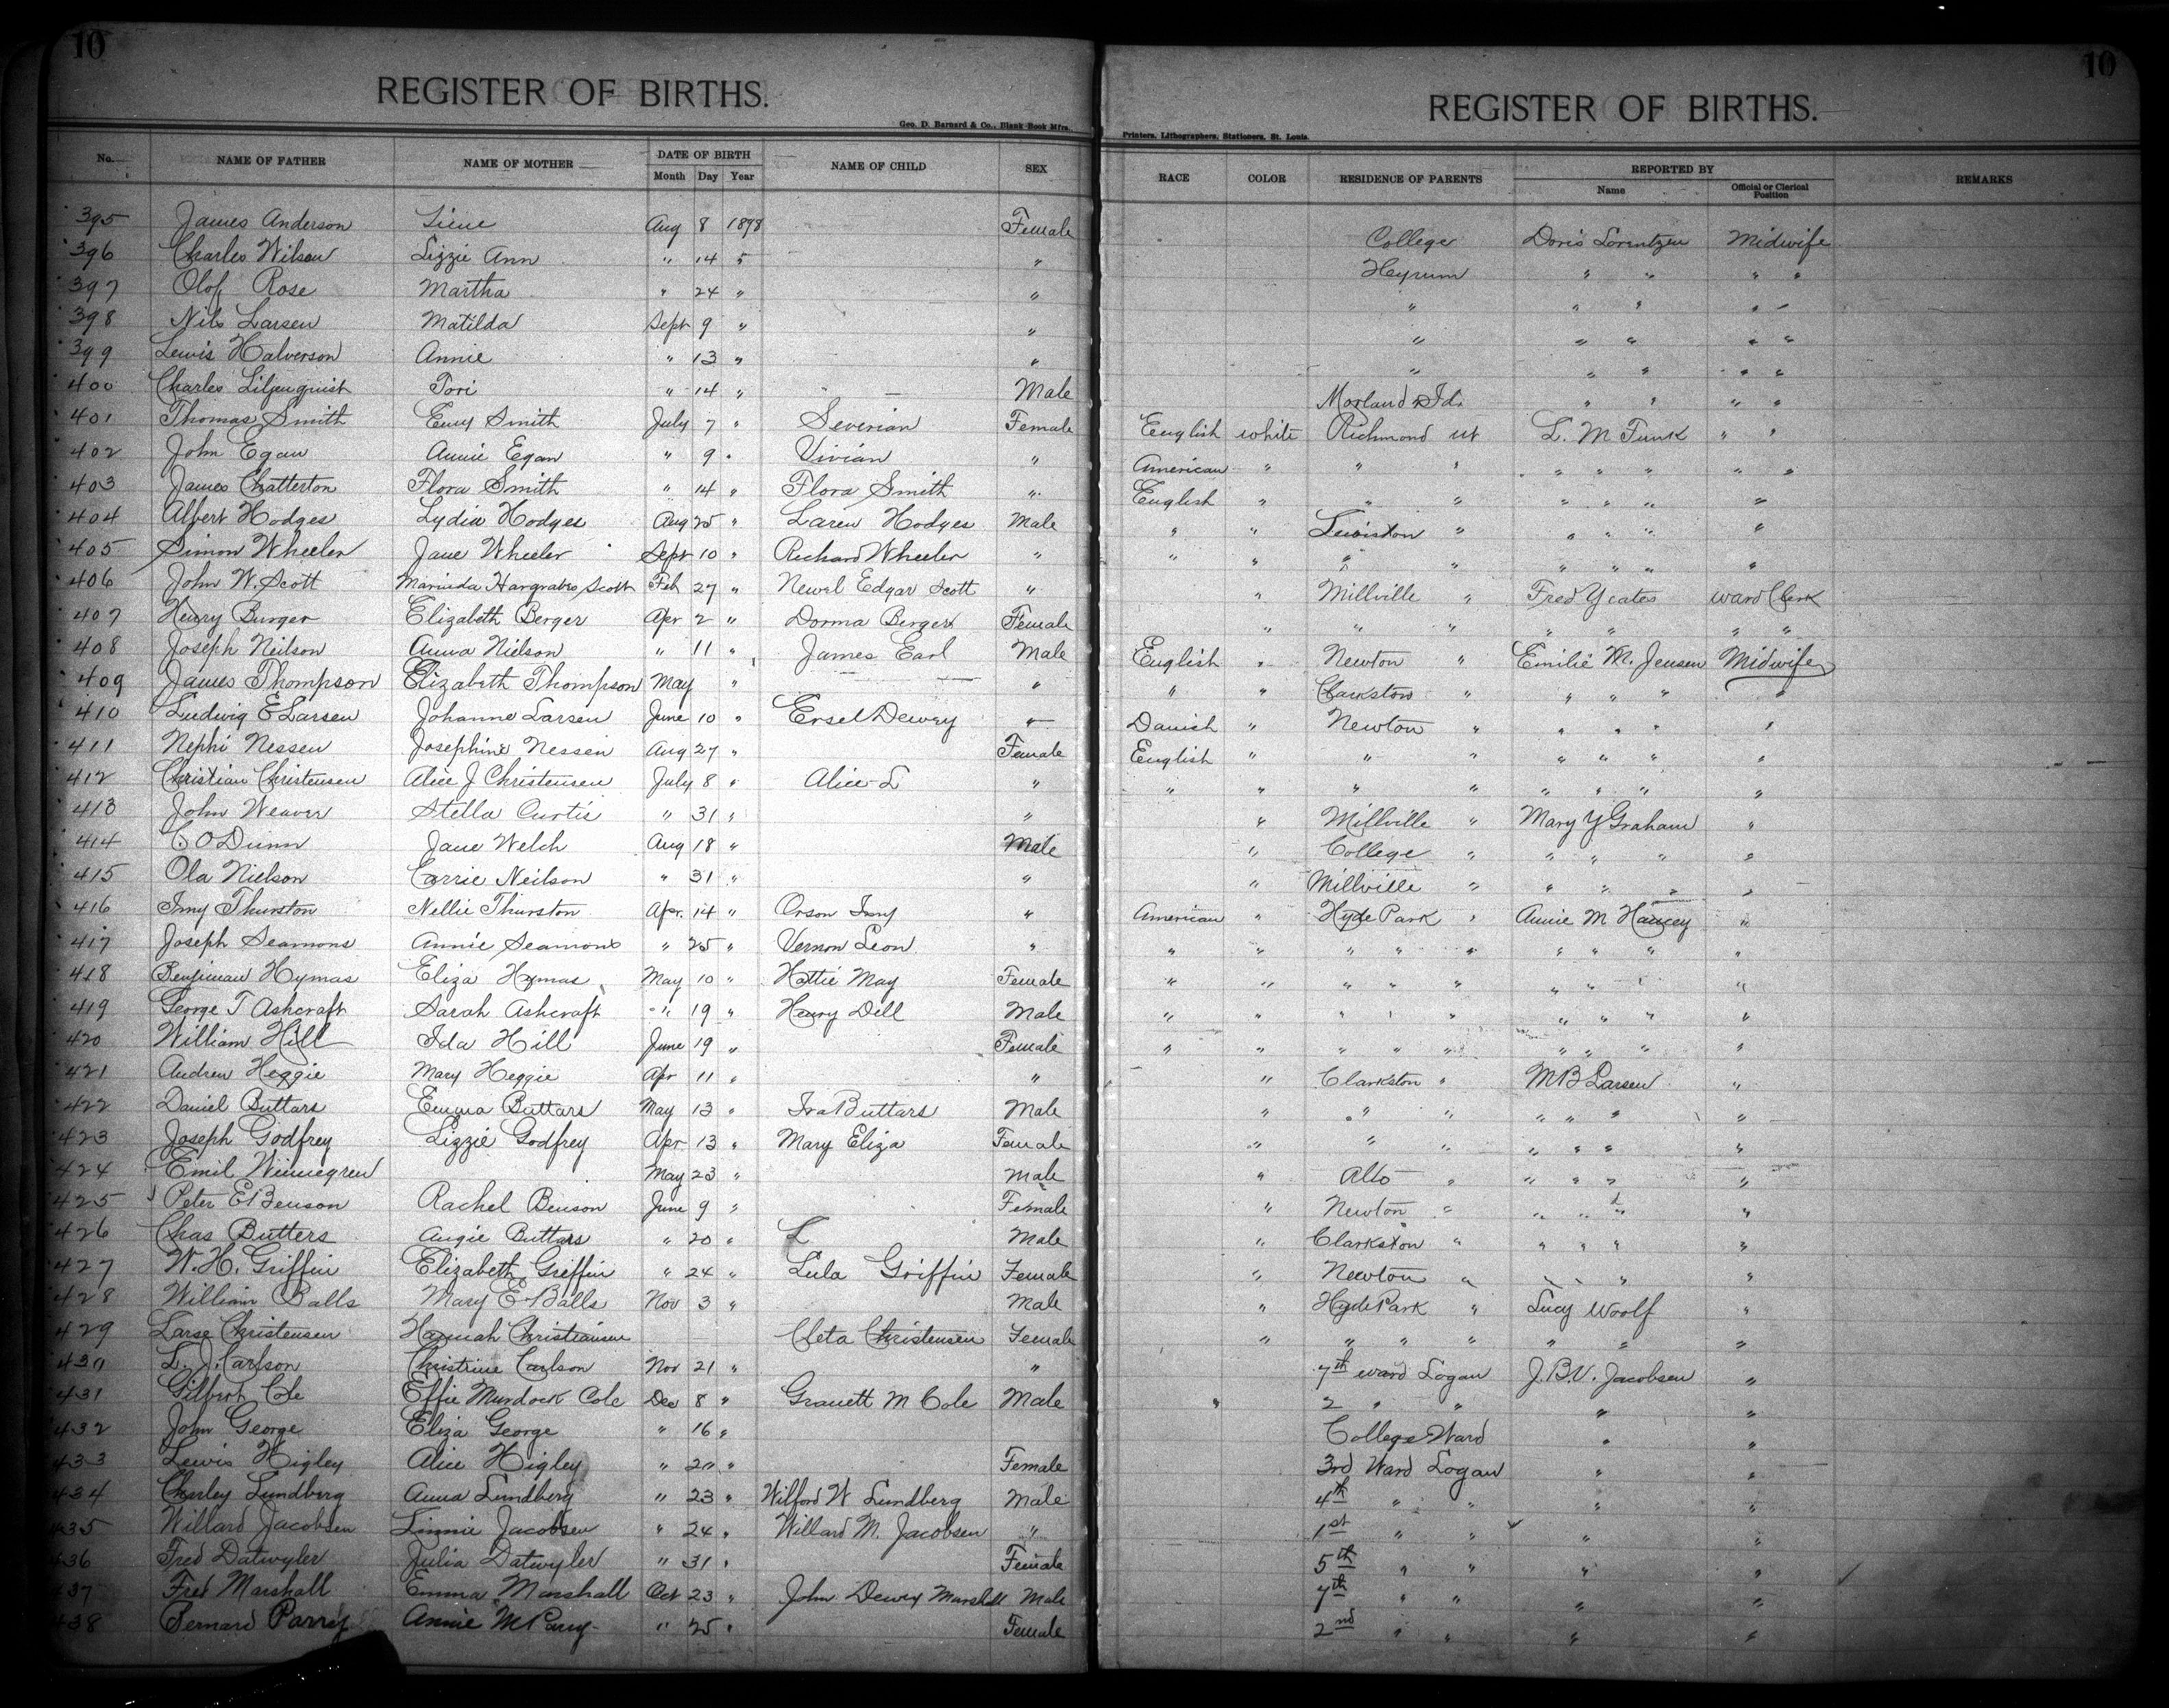 10
REGISTER OF BIRTHS.
Geo. D. Barnard & Co., Blank Book Mfrs.,
No. NAME OF FATHER NAME OF MOTHER DATE OF BIRTH NAME OF CHILD SEX
Month Day Year
395 James Anderson Aug 8 1898 Female
396 Charles Wilson Lizzie Ann " 14 "
397 Olof Rose Martha " 24 " "
398 Nils Larsen Matilda Sept 9 " "
399 Lewis Halverson Annie " 13 " "
400 Charles Liljenquist Tori " 14 " Male
401 Thomas Smith Emy Smith July 7 " Severian Female
402 John Egan Annie Egan " 9 " Vivian "
403 James Chatterton Flora Smith " 14 " Flora Smith "
404 Albert Hodges Lydia Hodges Aug 25 " Laren Hodges Male
405 Simon Wheeler Jane Wheeler Sept 10 " Richard Wheeler "
406 John W. Scott Marinda Hargrabes Scott Feb 27 " Newel Edgar Scott "
407 Henry Burger Elizabeth Berger Apr 2 " Dorma Berger Female
408 Joseph Neilson Anna Nielson " 11 " James Earl Male
409 James Thompson Elizabeth Thompson May " — "
410 Ludwig E Larsen Johanne Larsen June 10 " Ersel Dewey "
411 Nephi Nessen Josephine Nessen Aug 27 " Female
412 Christian Christensen Alice J Christensen July 8 " Alice L "
413 John Weaver Stella Curtis " 31 " "
414 C. O Dunn Jane Welch Aug 18 " Male
415 Ola Nielson Carrie Neilson " 31 " "
416 Thurston Nellie Thurston Apr. 14 " Orson "
417 Joseph Seamons Annie Seamons " 25 " Vernon Leon "
418 Benjiman Hymas Eliza Hymas May 10 " Hattie May Female
419 George T Ashcraft Sarah Ashcraft " 19 " Henry Dell Male
420 William Hill Ida Hill June 19 " Female
421 Andrew Heggie Mary Heggie Apr 11 " "
422 Daniel Buttars Emma Buttars May 13 " Ira Buttars Male
423 Joseph Godfrey Lizzie Godfrey Apr 13 " Mary Eliza Female
424 Emil May 23 " Male
425 Peter E Benson Rachel Benson June 9 " Female
426 Chas Butters Angie Buttars " 20 " L Male
427 W. H. Griffin Elizabeth Greffin " 24 " Lula Griffin Female
428 William Balls Mary E Balls Nov 3 " Male
429 Larse Christensen Hannah Christiansen Cleta Christensen Female
430 L. J. Carlson Christine Carlson Nov 21 " "
431 Gilbert Cole Effie Murdock Cole Dec 8 " M Cole Male
432 John George Eliza George " 16 "
433 Lewis Higley Alice Higley " 20 " Female
434 Charley Lundberg Anna Lundberg " 23 " Wilford W Lundberg Male
435 Willard Jacobsen Linnie Jacobsen " 24 " Willard M. Jacobsen "
436 Fred Datwyler Julia Datwyler " 31 " Female
437 Fred Marshall Emma Marshall Oct 23 " John Dewey Marshall Male
438 Bernard Parry Annie M Parry " 25 " Female
10
REGISTER OF BIRTHS.
Printers, Lithographers, Stationers, St. Louis.
RACE COLOR RESIDENCE OF PARENTS REPORTED BY REMARKS
Name Official or Clerical Position
College Doris Lorentzen Midwife
Hyrum " " " "
" " " " "
" " " " "
" " " " "
Morland Id. " " " "
English white Richmond ut L. M Funk " "
American " " " " " " " "
English " " " " " " "
" " Lewiston " " " " "
" " " " " " " "
" Millville " Fred Yeates ward Clerk
" " " " " " "
English " Newton " Emilie M. Jensen Midwife
" " Clarkston " " " " "
Danish " Newton " " " " "
English " " " " " " "
" " " " " " " "
" Millville " Mary Y Graham "
" College " " " " "
" Millville " " " " "
American " Hyde Park " Annie M Hancey "
" " " " " " " " "
" " " " " " " " "
" " " " " " " " "
" " " " " " " " "
" Clarkston " M B Larsen "
" " " " " " "
" " " " " " "
" Alto " " " " "
" Newton " " " " "
" Clarkston " " " " "
" Newton " " " " "
" Hyde Park " Lucy Woolf "
" " " " " " "
7th ward Logan J. B. V. Jacobsen "
" 2 " " " "
College Ward " "
3rd Ward Logan " "
4th " " " "
1st " " " "
5th " " " "
7th " " " "
2nd " " " "